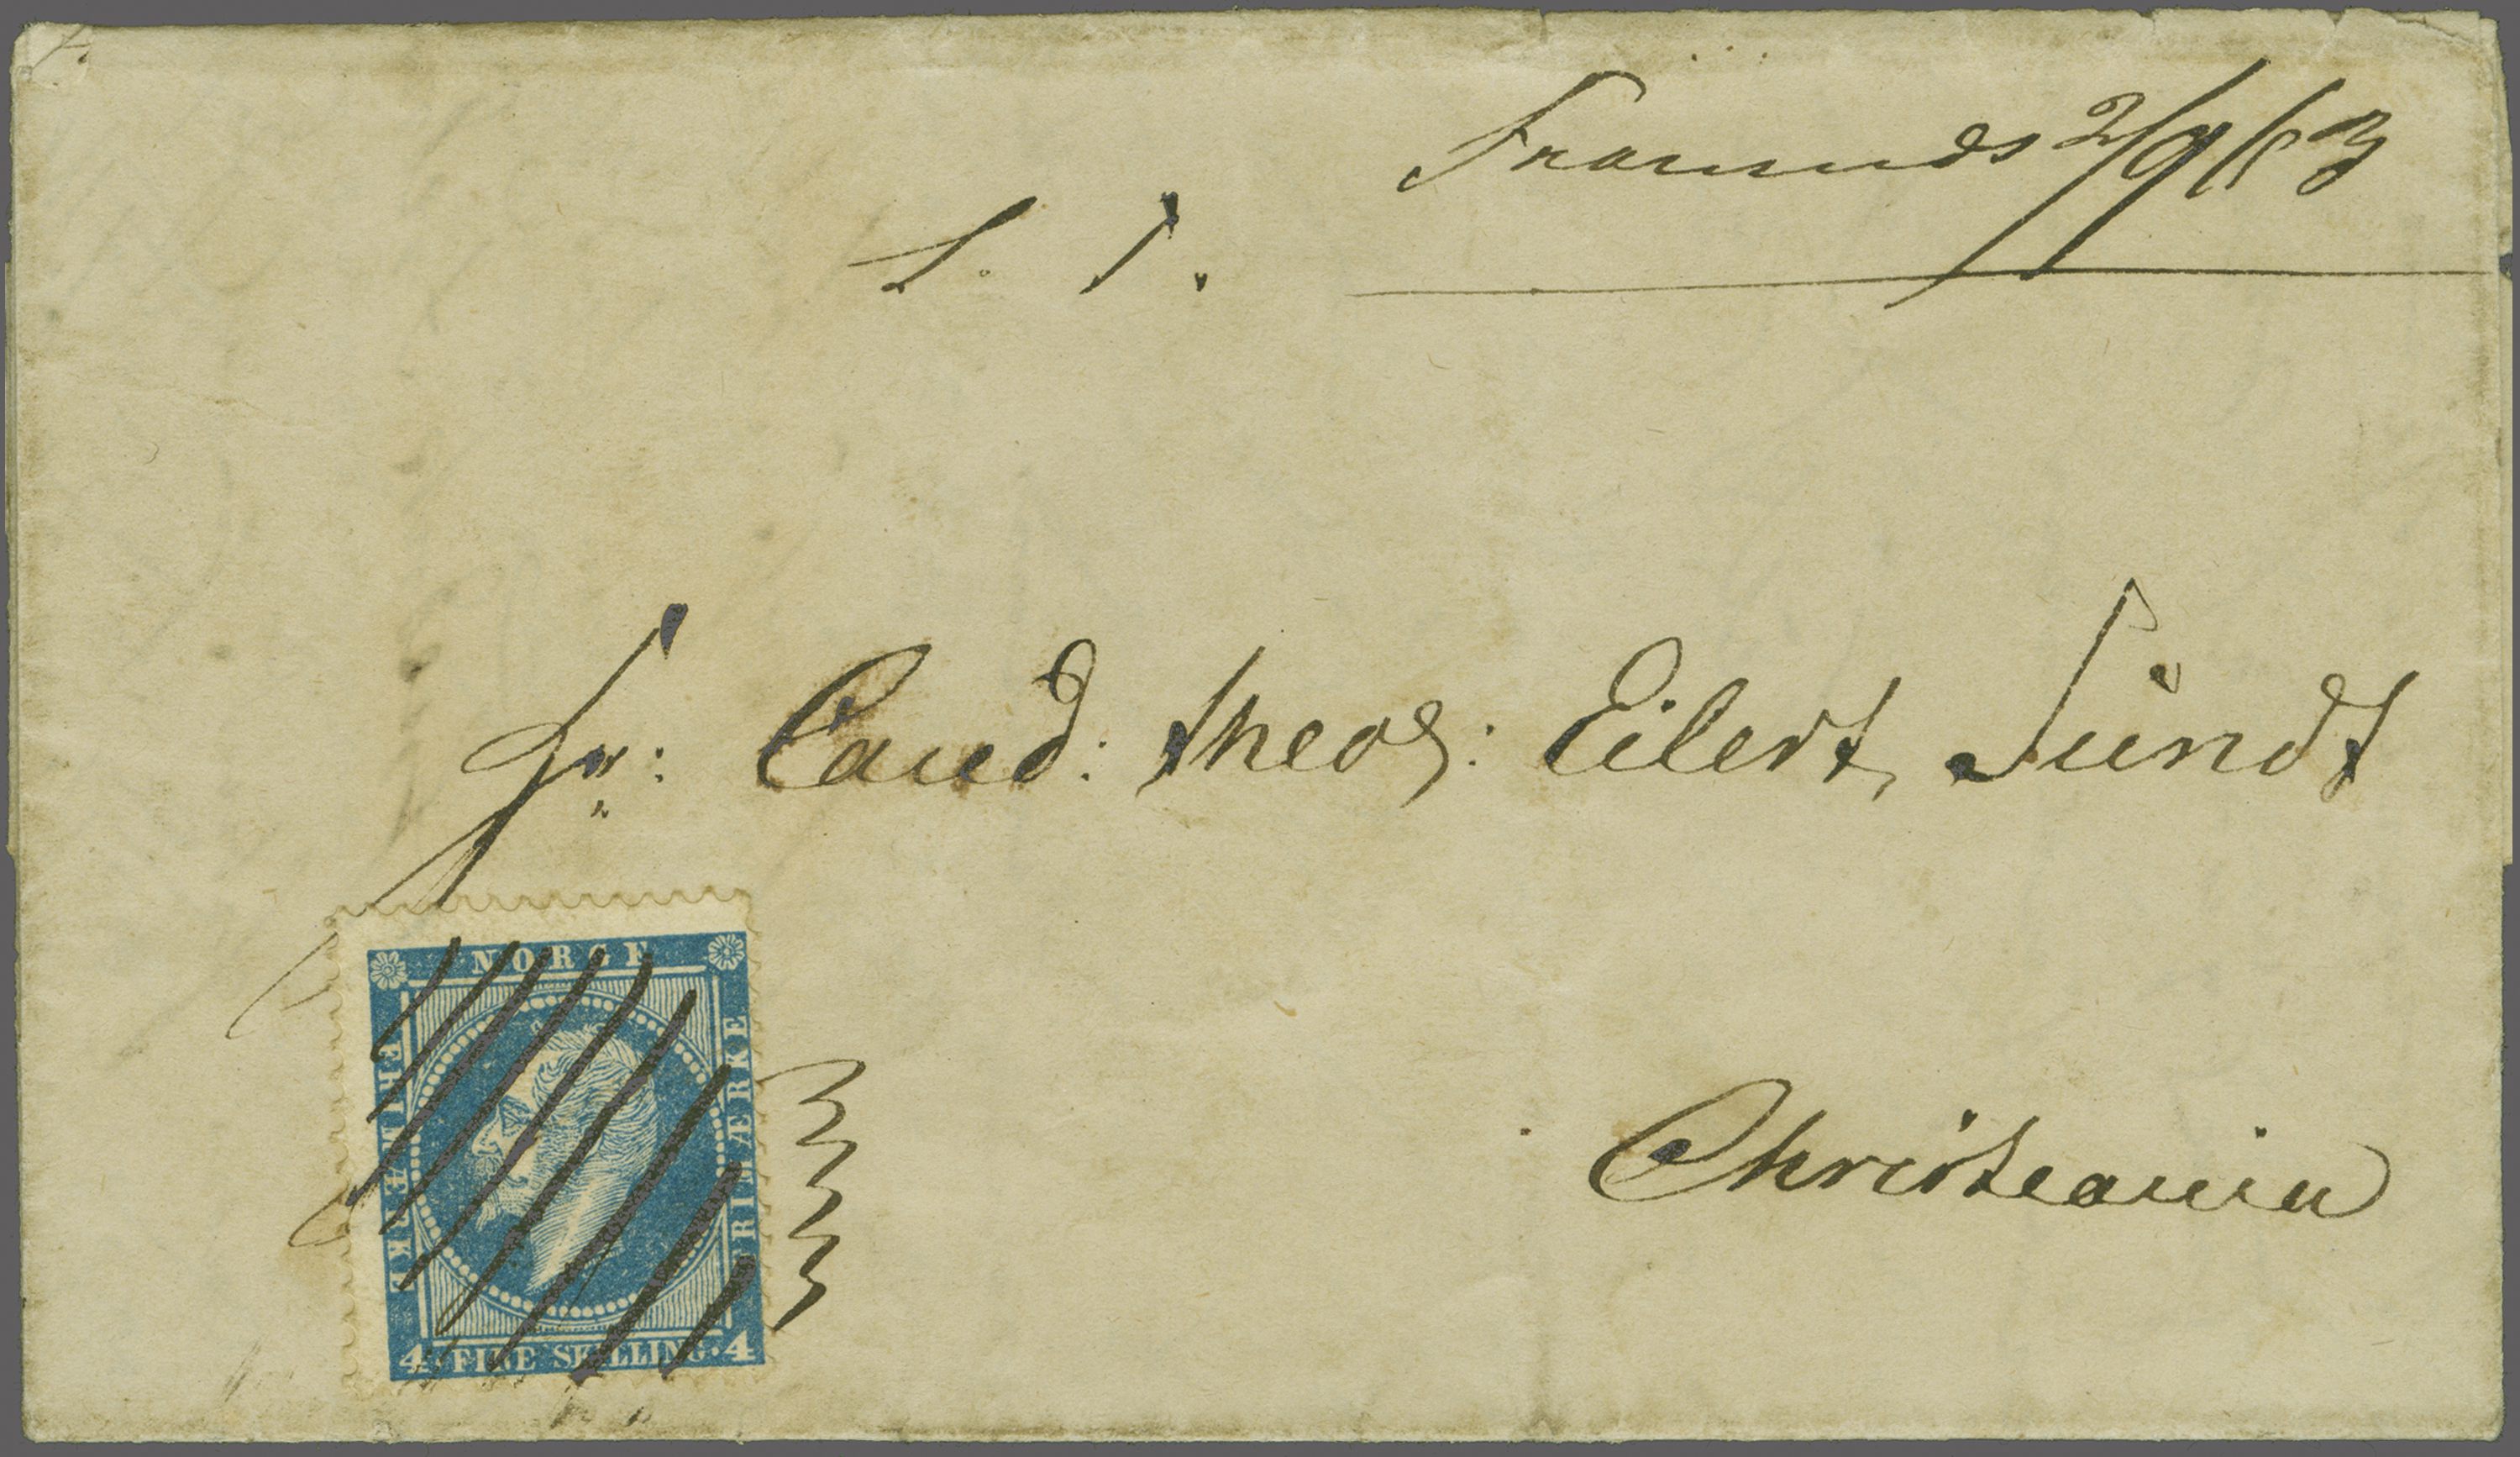 2/9 63
S. T.
Hr: Cand: theol: Eilert Sundt
Christiania
NORGE
FRIMÆRKE
FRIMÆRKE
4 FIRE SKILLING. 4